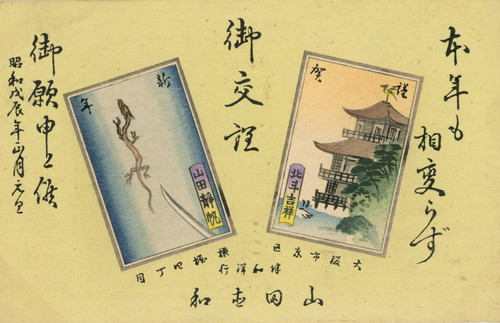 本年も
相変らず
御交誼
御願申上候
昭和戊辰年正月元旦
謹
賀
新
年
北斗吉祥
山田静帆
大阪市東
横堀四丁目